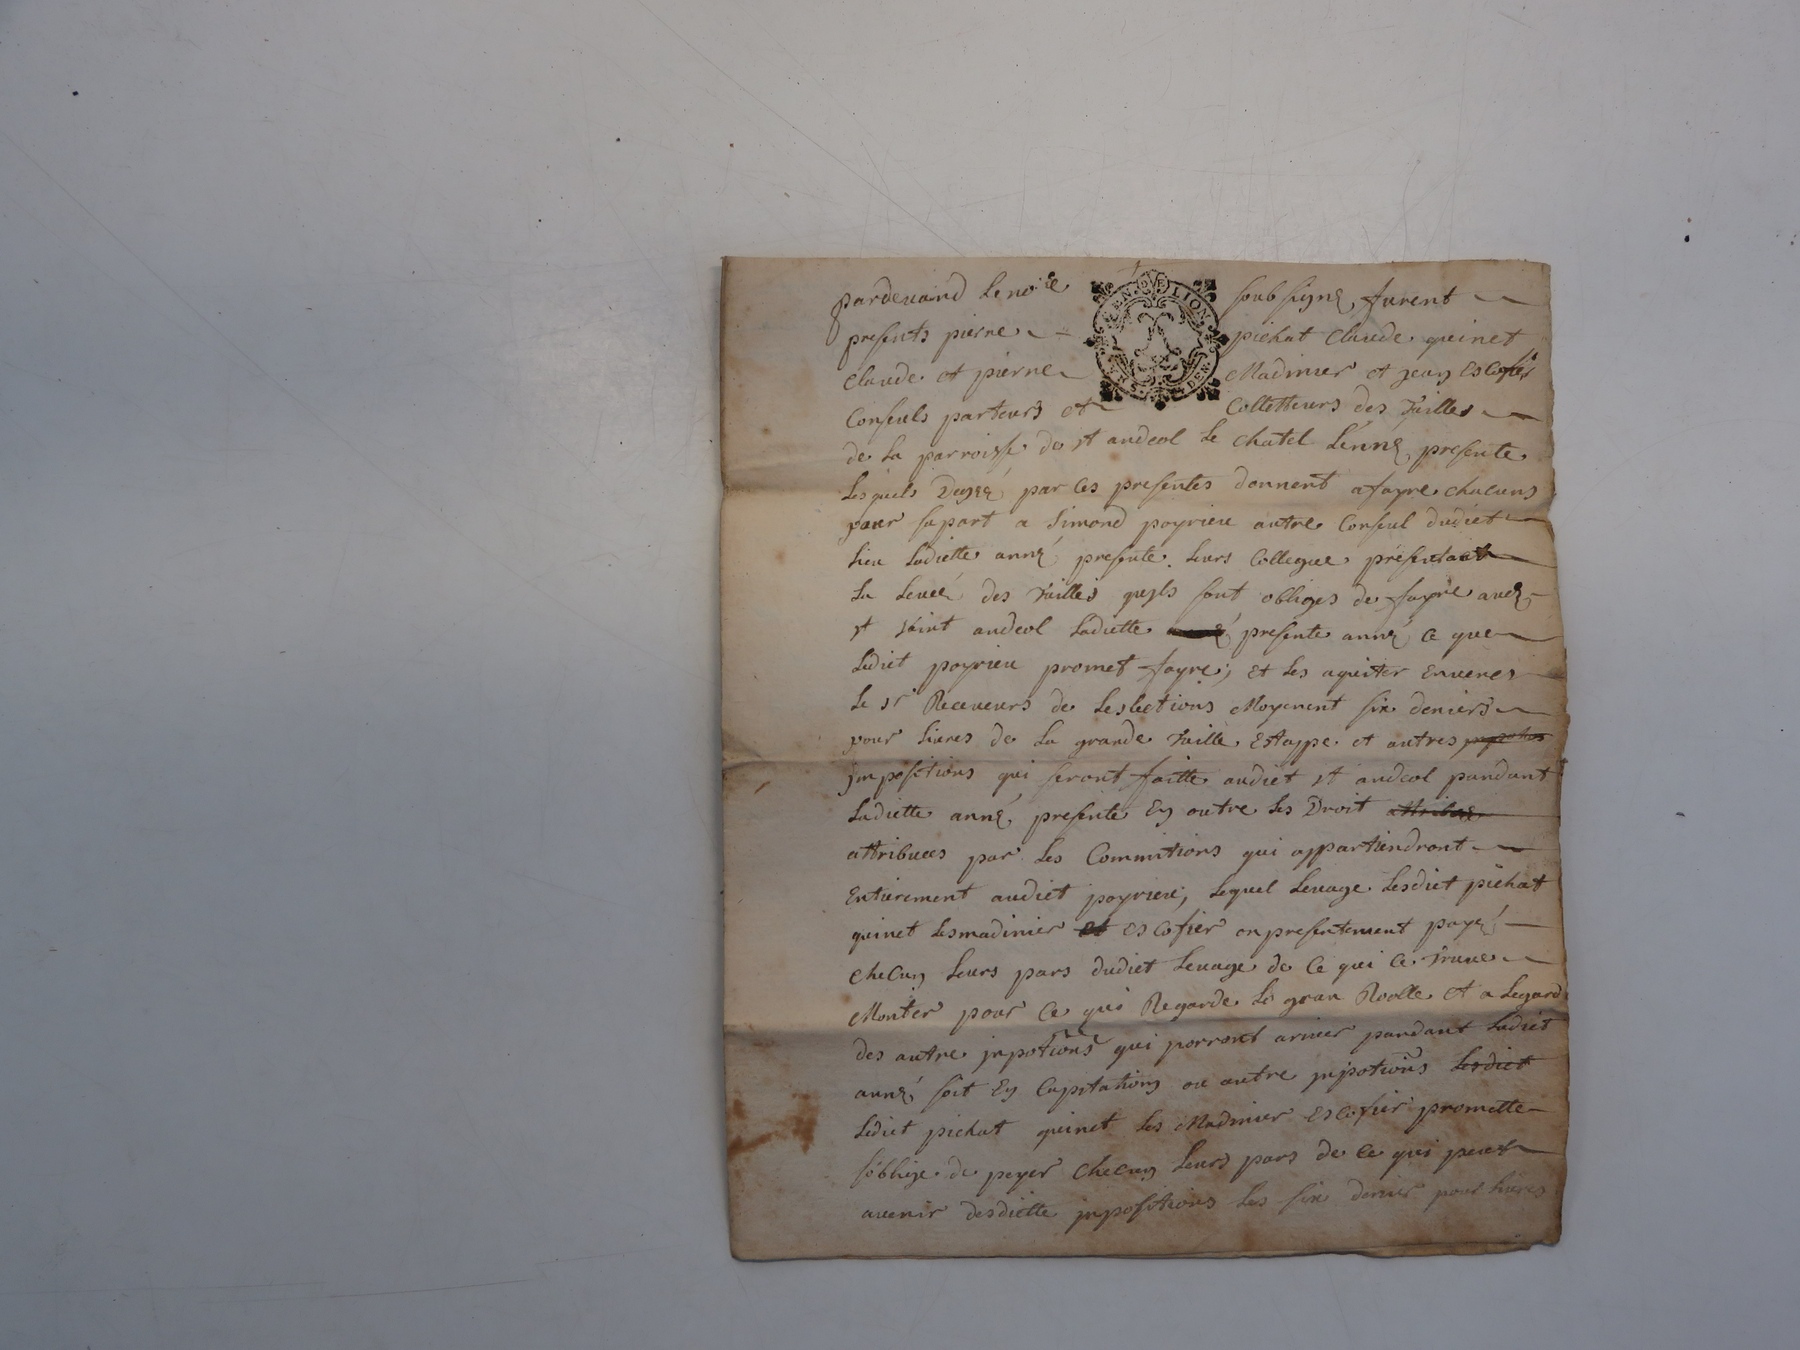 pardevand Le no.re soubsigné, furent
presents pierre pichat Claude quinet
Claude et pierre Madinier et jean Escofier
Consuls parteurs et Colletteurs des Tailles
de La parroisse de st andeol Le chatel L'énné, presente
Lesquels par Ces presentes donnent a fayre chacuns
pour sa part a Simond poyrieu autre Consul dudiet
Lieu Ladiette anné presente. Leurs Collegue
La Levée des Tailles quyls sont obliges de fayre
st saint andeol Ladiette presente anné Ce que
Lediet poyrieu promet fayre, et Les aquiter Enveres
Le sr Receveurs de Leslections Moyenent six deniers
pour Livres de La grande Taille, Estappe et autres
jmpositions qui seront faitte audiet st andeol pandant
Ladiette anné, presente En outre Les Droit attribue
attribuees par Les Commitions qui appartiendront
Entierement audiet poyrieu, Lequel Levage Lesdiet pichat
quinet Lesmadinier et Escofier on presentement payé
checun Leurs pars dudiet Levage de Ce qui Ce truve
Monter pour Ce qui Regarde Le gran Roolle et a Legard
des autre jnpotions qui porront ariver pandant Ladiet
anné, soit En Capitation ou autre jnpotions Lesdiet
Lediet pichat quinet Les Madinier Escofier promette
s'oblige de peyer checun Leurs pars de Ce qui peut
avenir desdiette jnpositions Les six denier pour Livres